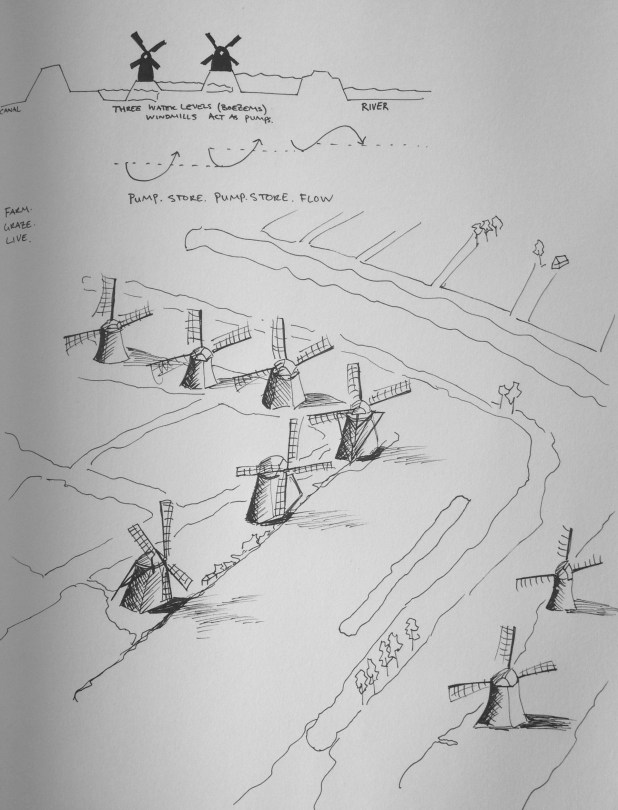 CANAL
THREE WATER LEVELS (BOEZEMS)
WINDMILLS ACT AS PUMPS.
RIVER
PUMP. STORE. PUMP. STORE. FLOW
FARM.
GRAZE.
LIVE.